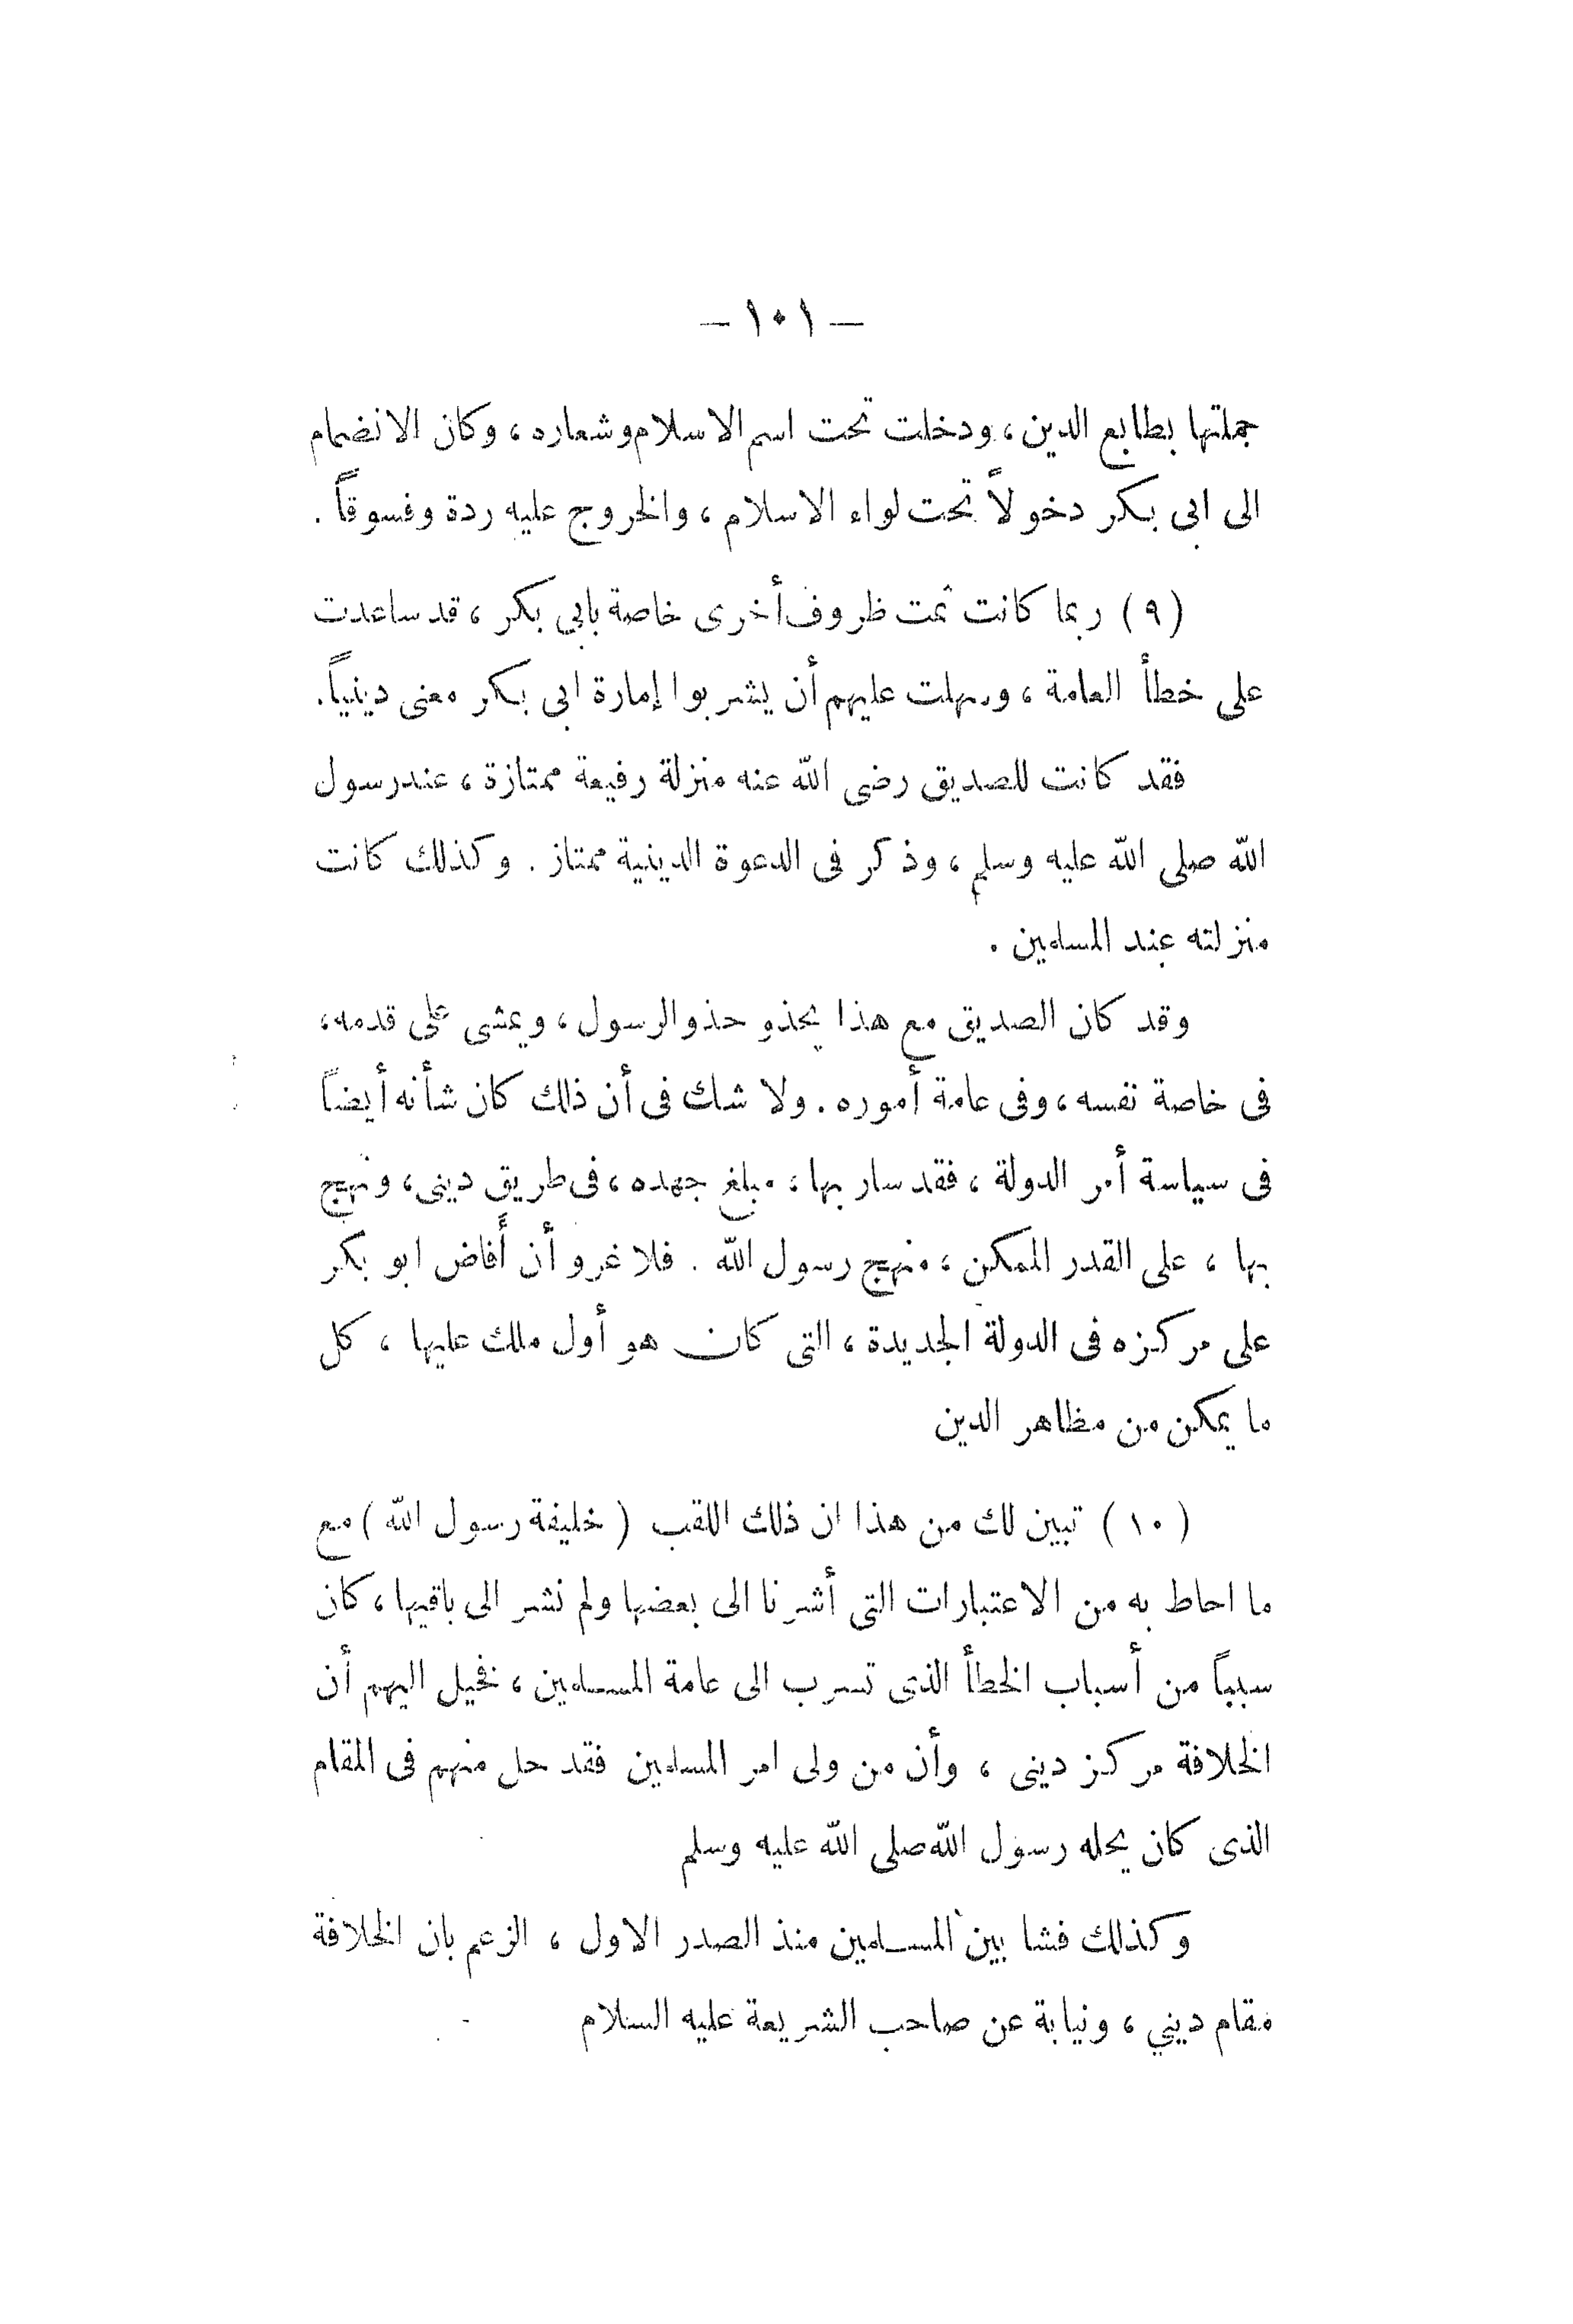 — ١٠١ —
جملتها بطابع الدين، ودخلت تحت اسم الاسلام وشعاره، وكان الانضمام
الى ابى بكر دخولاً تحت لواء الاسلام، والخروج عليه ردة وفسوقاً.
(٩) ربما كانت ثمت ظروف أخرى خاصة بابي بكر، قد ساعدت
على خطأ العامة، وسهلت عليهم أن يشربوا إمارة ابى بكر معنى دينياً.
فقد كانت للصديق رضى الله عنه منزلة رفيعة ممتازة، عند رسول
الله صلى الله عليه وسلم، وذكر فى الدعوة الدينية ممتاز. وكذلك كانت
منزلته عند المسلمين.
وقد كان الصديق مع هذا يحذو حذو الرسول، ويمشى على قدمه،
فى خاصة نفسه، وفى عامة أموره. ولا شك فى أن ذلك كان شأنه أيضاً
فى سياسة أمر الدولة، فقد سار بها، مبلغ جهده، فى طريق دينى، ونهج
بها، على القدر الممكن، منهج رسول الله. فلا غرو أن أفاض ابو بكر
على مركزه فى الدولة الجديدة، التى كان هو أول ملك عليها، كل
ما يمكن من مظاهر الدين
(١٠) تبين لك من هذا ان ذلك اللقب (خليفة رسول الله) مع
ما احاط به من الاعتبارات التى أشرنا الى بعضها ولم نشر الى باقيها، كان
سبباً من أسباب الخطأ الذى تسرب الى عامة المسلمين، فخيل اليهم أن
الخلافة مركز دينى، وأن من ولى امر المسلمين فقد حل منهم فى المقام
الذى كان يحله رسول الله صلى الله عليه وسلم
وكذلك فشا بين المسلمين منذ الصدر الاول، الزعم بان الخلافة
مقام ديني، ونيابة عن صاحب الشريعة عليه السلام